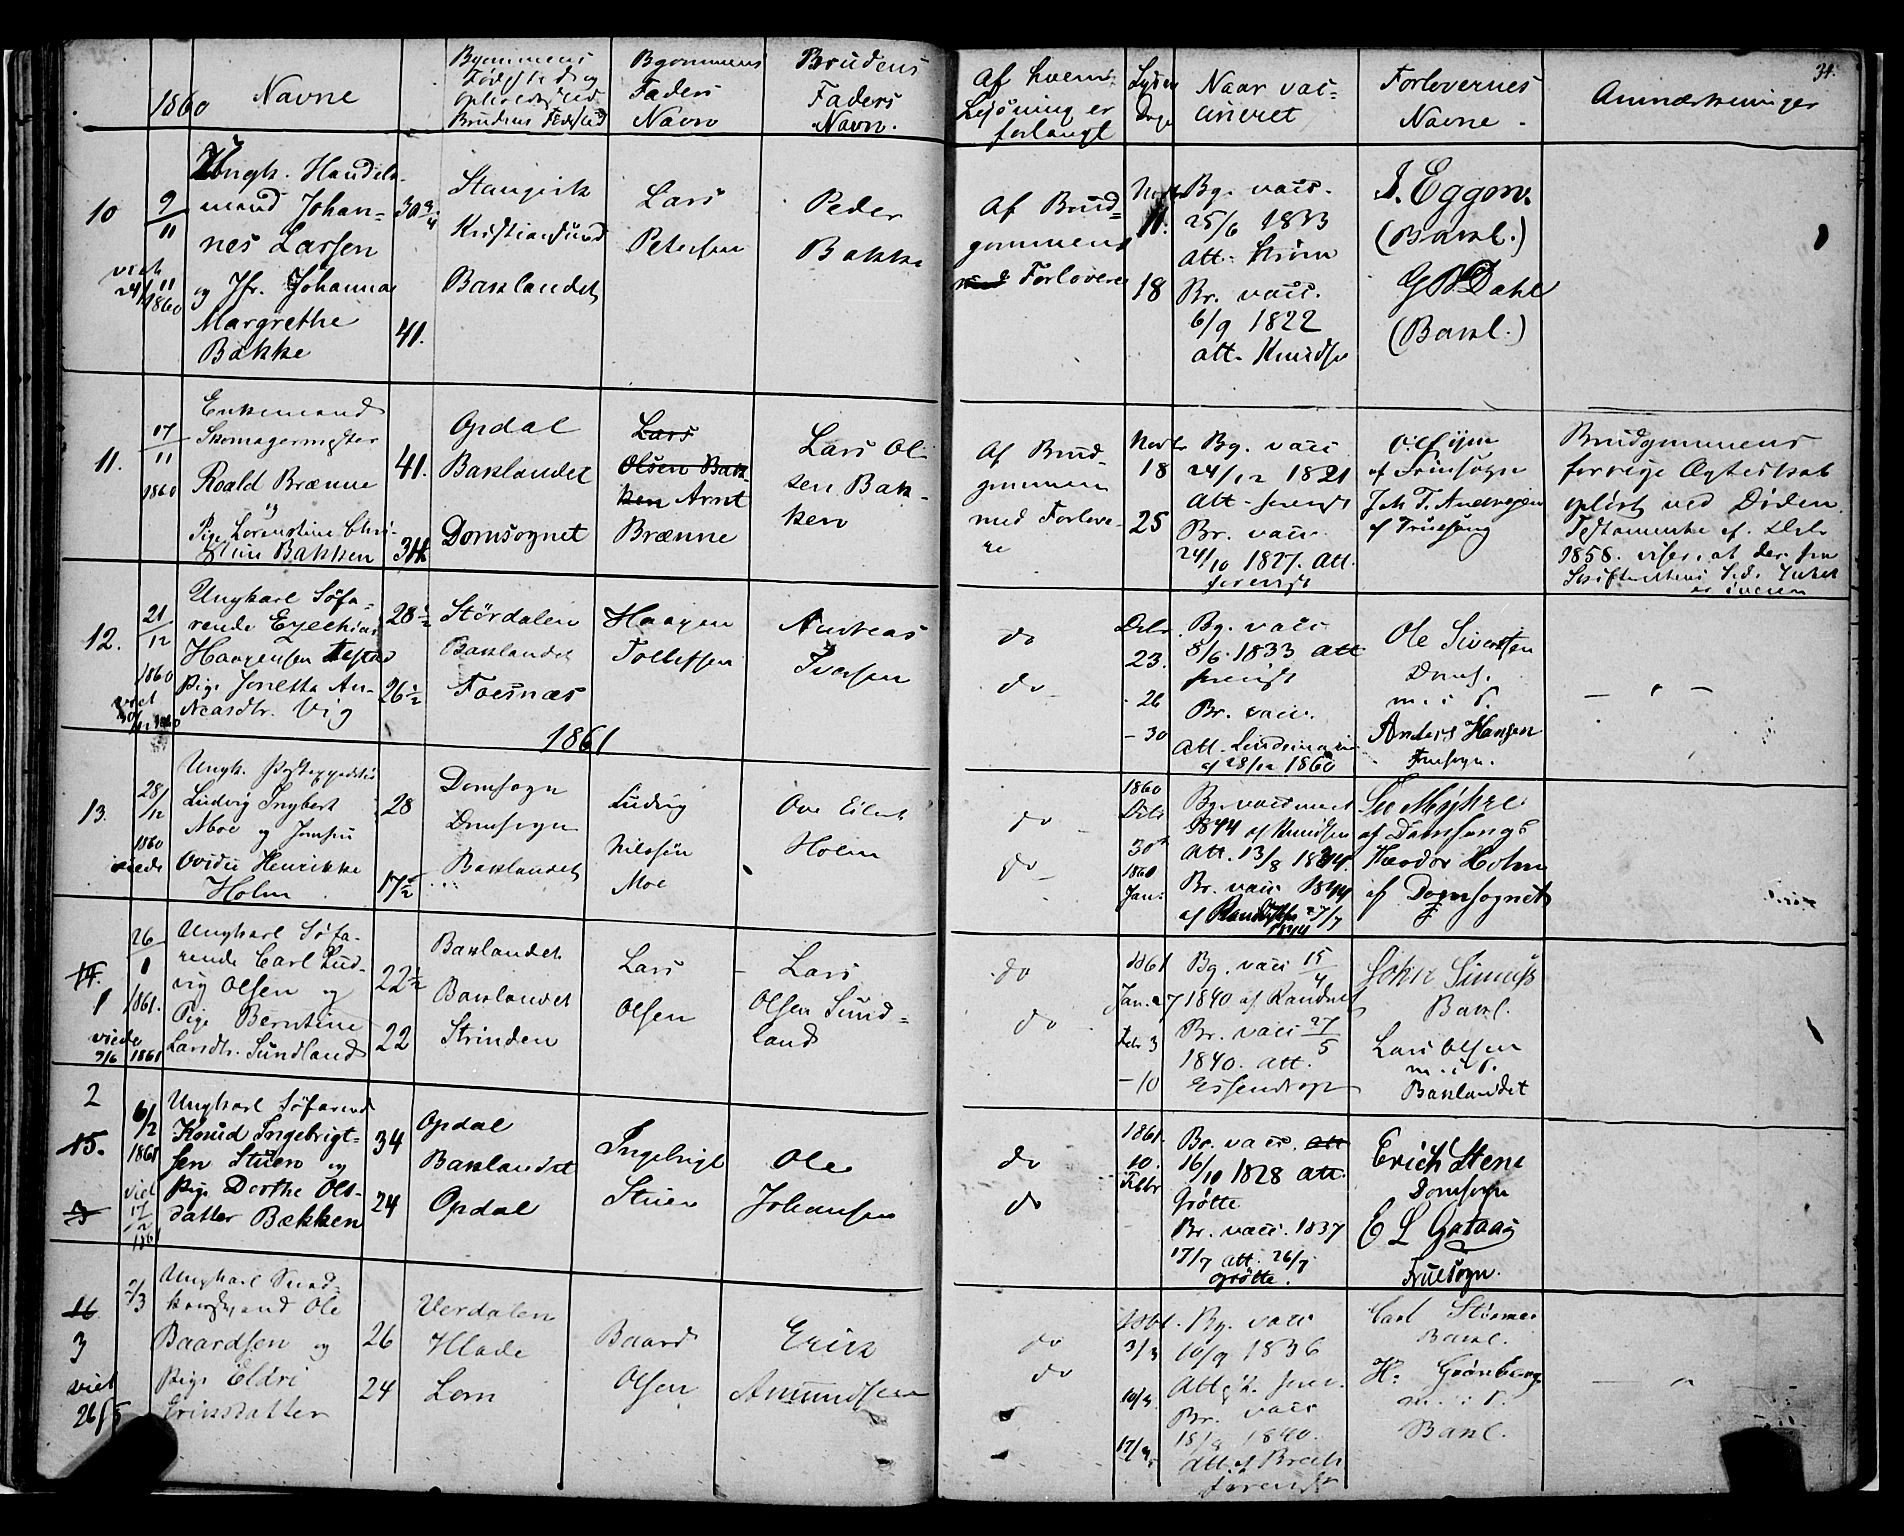 34.
1860
Navne
Brudens Fødested
Bgommens
Faders
Navn
Brudens
Faders
Navn.
Af hvem
Lysning er
forlangt
Naar vac=
cineret
Forlovernes
Navne
Anmærkninger
10
9/11
viet
24/11
1860
Ungk. Handels-
mand Johan=
nes Larsen
og Jfr. Johanna
Margrethe
Bakke
30 3/4
41.
Kristiansund
Baklandet
Lars
Petersen
Peder
Bakke
Af Brud=
gommens
Forlovere
11.
18
Bg. vacc.
25/6 1833
att. Strøm
Br. vacc.
6/9 1822
att. Knudsen
J. Eggen.
(Bakl.)
Dahl
(Bakl.)
11.
17/11
1860
Enkemand
Skomagermester
Roald Brænne
og
Pige Lorentine Chri-
stine Bakken
41.
34
Opdal
Baklandet
Domsognet
Lars
Olsen Bak-
ken Arnt
Brænne
Lars Ol-
sen Bak-
ken
Af Brud-
gommen
med Forlove-
re
Novbr
18
25
Bg. vacc
24/12 1821
Att.
Br. vacc.
24/10 1827. Att.
Brudgommens
forrige Ægteskab
opløst ved Døden.
1858. viser, at der fra
Skifterettens Side Intet
12.
21/12
1860
viet
30/12 1860
Ungkarl Søfa-
rende Ezechias
Haagensen
Pige Jonetta An-
dreasdtr. Vig
28 1/2
26 1/2
Størdalen
Baklandet
Foesnæs
Haagen
Tollefsen
Andreas
Iversen
do
do
Debr.
23.
26
- 30
Bg. vacc
8/6 1833 att
Br. vacc.
att. Lindeman
af 28/12 1860
Ole Sivertsen
Doms.
m. i P.
Anders Hansen
Fruesogn.
1861
13.
28/12
1860
viede
Ludvig Ingbert
Moe og Jomfru
Ovidii Henrikke
Holm
28
17 1/2
Domsogn
Domsogn
Baklandet
Ludvig
Nilssøn
Moe
Ove Eilert
Holm
do
do
1860
Debr
30
1861
Jan.
Bg. vacc
1844 af Knudsen
att. 13/8 1844.
Br. vacc 1844
27/7
1844
af Domsogn
Theodor Holm
af Domsognet
14.
1
26/1
1861.
viede
9/6 1861
Ungkarl Søfa-
rende Carl Lud-
vig Olsen og
Pige Berntine
Larsdtr. Sundland
22 1/2
22
Baklandet
Baklandet
Strinden
Lars
Olsen
Lars
Olsen Sund=
land
do
do
1861
Jan. 27
Febr 3
- 10
Bg. vacc 15/4
1840
Br. vacc 27/5
1840. att.
Essendrop
Bakl.
Lars Olsen
m. i P.
Baklandet
2
15.
3
6/2
1861
viet
17/2
1861
Ungkarl Søfarend
Knud Ingebrigt=
sen Stuen og
Pige Dorthe Ols-
datter Bakken
34
24
Opdal
Baklandet
Opdal
Ingebrigt
Stuen
Ole
Johansen
do
do
1861.
10.
Febbr
Br. vacc. att
16/10 1828 att.
Grøtte
Br. vacc. 1837
17/7 att. 26/7
Grøtte.
Erich Stene
Domsogn
E L Gataas
Fruesogn.
16
3
viet
26/5
2/3
Ungkarl
Ole
Baardsen og
Pige Eldri
Ericksdatter
26
24
Verdalen
Hlade
Lom
Baard
Olsen
Erick
Amundsen
do
do
1861.
3/3
10/3
17/3
Bg. vacc
10/9 1836
Br. vacc
1840.
Carl
Bakl.
H. Grønberg
m. i P.
Bakl.